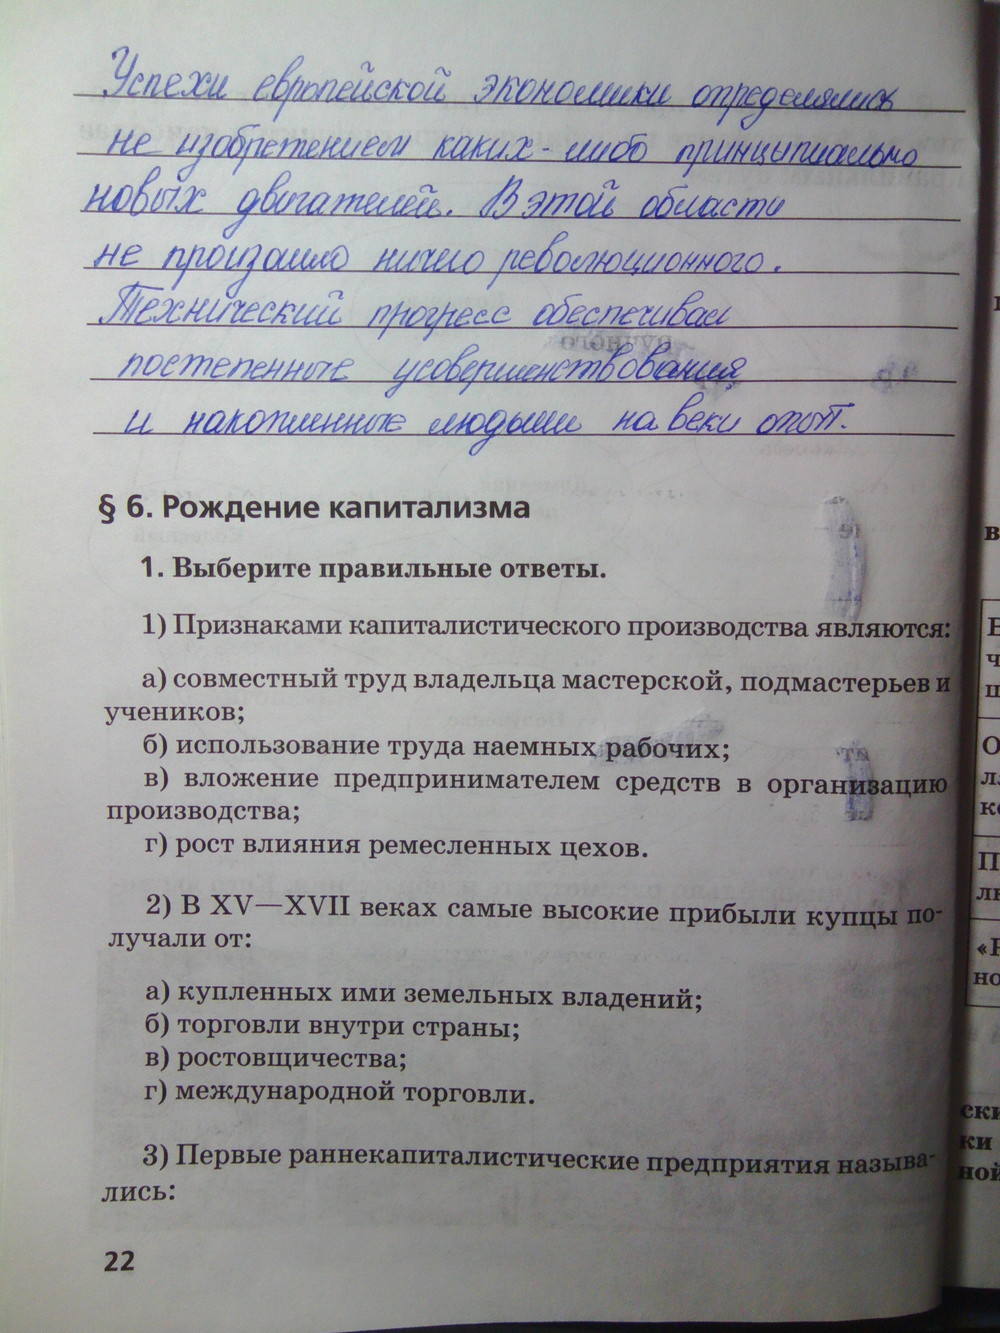 Успехи европейской экономики определялись
не изобретением каких-либо принципиально
новых двигателей. В этой области
не произошло ничего революционного.
Технический прогресс обеспечивал
постепенные усовершенствования
и накопленные людьми на веки опыт.
§ 6. Рождение капитализма
1. Выберите правильные ответы.
1) Признаками капиталистического производства являются:
а) совместный труд владельца мастерской, подмастерьев и
учеников;
б) использование труда наемных рабочих;
в) вложение предпринимателем средств в организацию
производства;
г) рост влияния ремесленных цехов.
2) В XV—XVII веках самые высокие прибыли купцы по-
лучали от:
а) купленных ими земельных владений;
б) торговли внутри страны;
в) ростовщичества;
г) международной торговли.
3) Первые раннекапиталистические предприятия называ-
лись:
22